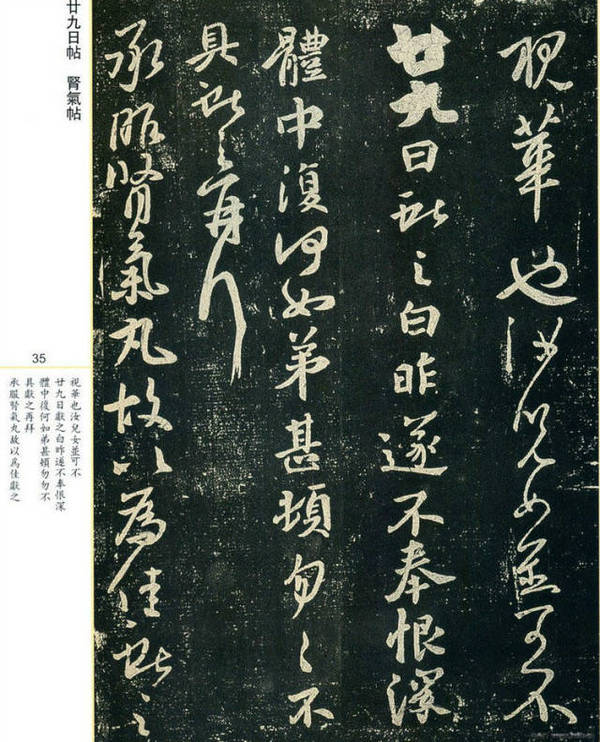 視華也汝兒女並可不
廿九日獻之白昨遂不奉恨深
體中復何如弟甚頓匆匆不
具獻之再拜
承服腎氣丸故以為佳獻之
廿九日帖 腎氣帖
35
視華也汝兒女並可不
廿九日獻之白昨遂不奉恨深
體中復何如弟甚頓勿勿不
具獻之再拜
承服腎氣丸故以爲佳獻之